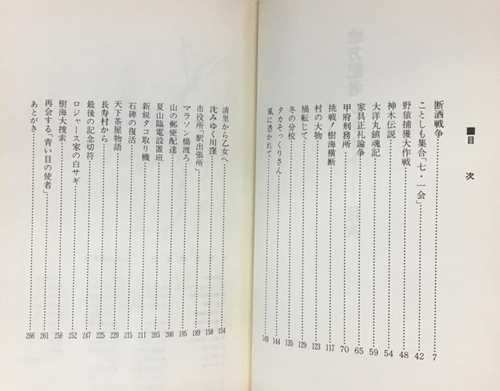 ■目次
断酒戦争……7
ことしも集合「七・一会」……42
野猿捕獲大作戦……48
神木伝説……54
大洋丸鎮魂記……59
家具正札論争……65
甲府刑務所……70
挑戦！樹海横断……117
村の大物……123
禍転じて……129
冬の分校……135
タカそっくりさん……144
風に憑かれて……149
清里から乙女へ……154
沈みゆく川窪……158
市役所「駅出張所」……189
マラソン橋渡ろ……195
山の郵便配達……200
夏山臨電設置班……205
新鋭タコ取り機……211
石碑の復活……215
天下茶屋物語……220
長寿村から……225
最後の記念切符……247
ロジャース家の白サギ……252
樹海大捜索……256
再会する「青い目の使者」……261
あとがき……266